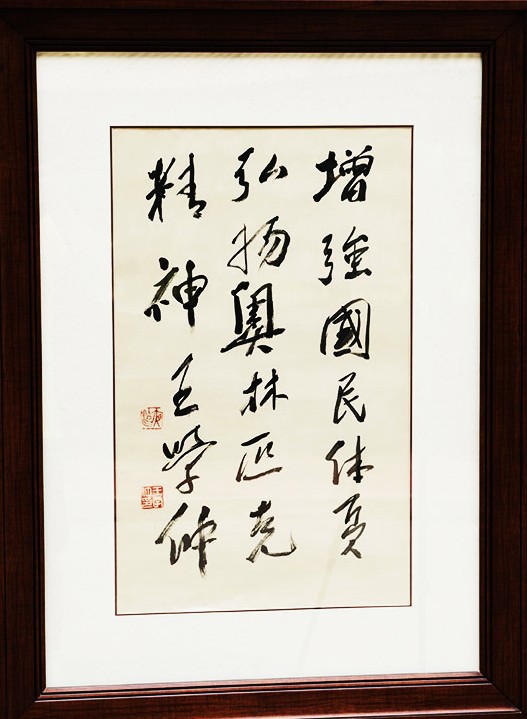 增强國民体质
弘扬奥林匹克
精神 王学仲